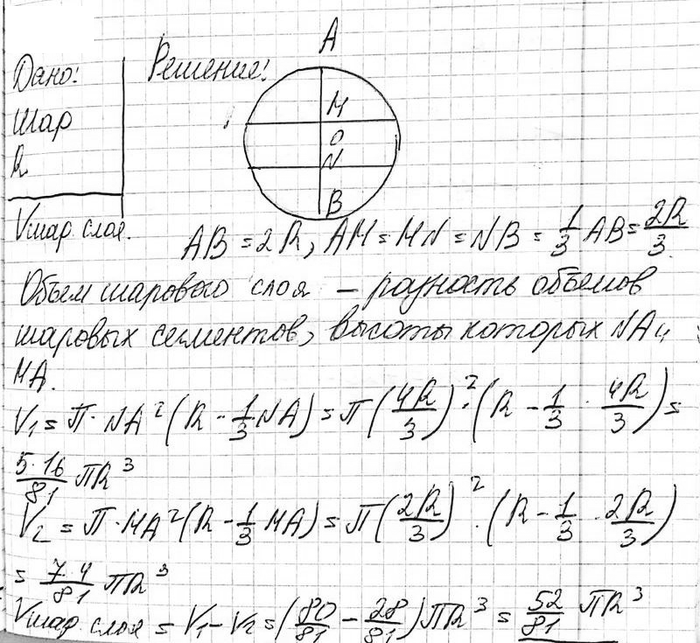 A
Дано:
Решение!
Шар
R
M
O
N
B
Vшар слоя.
AB = 2R, AM = MN = NB = 1/3 AB = 2R/3
Объем шарового слоя – разность объемов
шаровых сегментов, высоты которых NA и
MA.
V₁ = π · NA² (R - 1/3 NA) = π (4R/3)² · (R - 1/3 · 4R/3) =
5·16/81 πR³
V₂ = π · MA² (R - 1/3 MA) = π (2R/3)² · (R - 1/3 · 2R/3)
= 7·4/81 πR³
Vшар слоя = V₁ - V₂ = (80/81 - 28/81) πR³ = 52/81 πR³